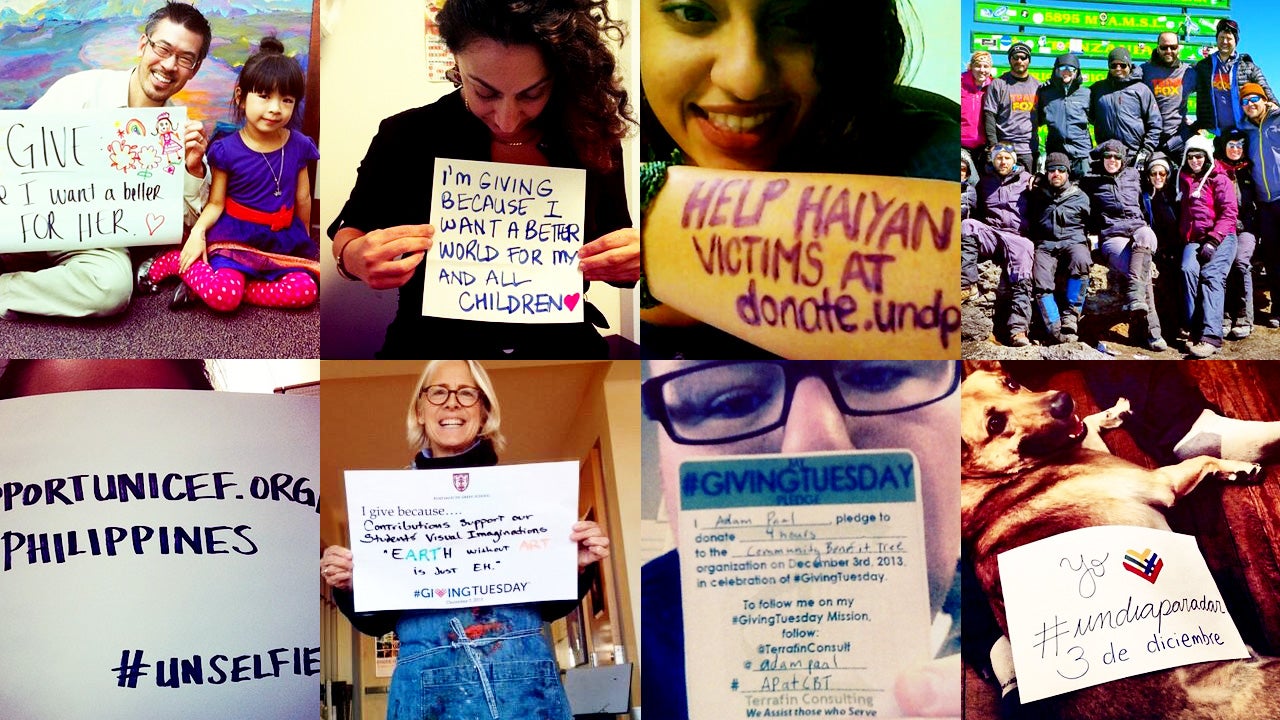 GIVE
I want a better
FOR HER.
I'm GIVING
BECAUSE I
WANT A BETTER
WORLD FOR MY
AND ALL
CHILDREN
HELP HAIYAN
VICTIMS AT
donate.undp
5895 M A.M.S.L
FOX
FOX
PPORTUNICEF.ORG/
PHILIPPINES
#UNSELFIE
I give because....
Contributions Support our
Students' Visual Imaginations
"EARTH without ART
is Just EH."
#GIVINGTUESDAY
#GIVINGTUESDA
I Adam Paal, pledge to
donate 4 hours
to the Community Benefit Tree
organization on December 3rd, 2013,
in celebration of #GivingTuesday.
To follow me on my
#GivingTuesday Mission,
follow:
@TerrafinConsult
@ adampaal
# APatCBT
Terrafin Consulting
We Assist those who Serve
Yo
#undiaparadar
3 de diciembre